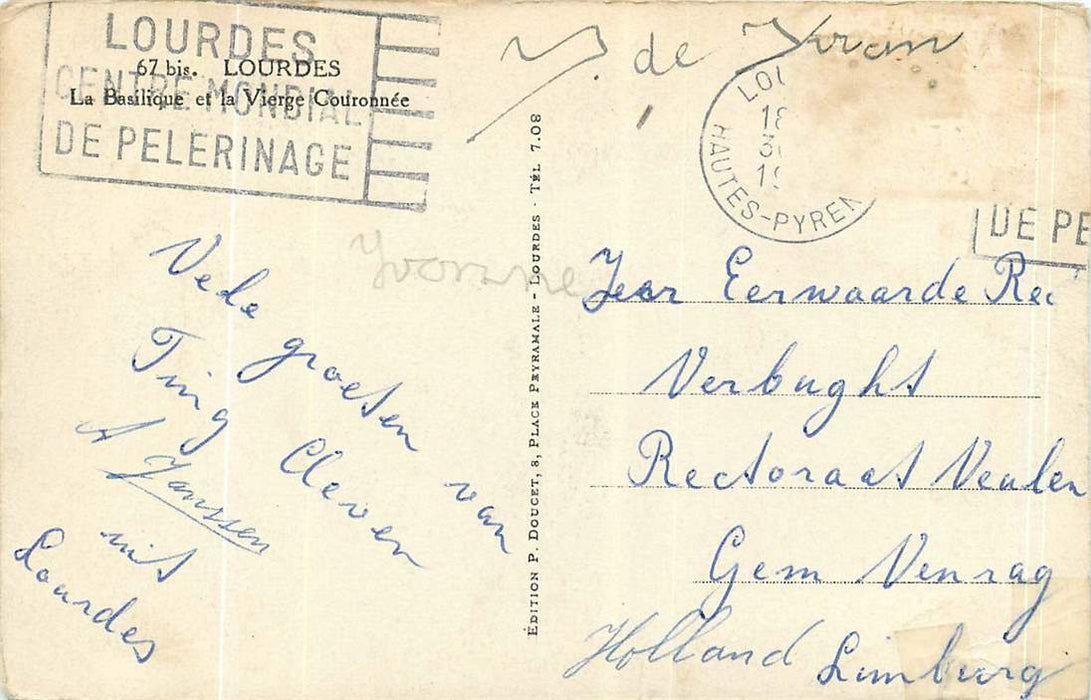 LOURDES
CENTRE MONDIAL
DE PELERINAGE
67 bis. LOURDES
La Basilique et la Vierge Couronnée
de
LOU
18
HAUTES-PYREN
DE PE
Yvonne
Vele groeten van
Ting Cleven
A Janssen
uit
Lourdes
ÉDITION P. DOUCET, 8, PLACE PEYRAMALE - LOURDES - TÉL 7.08
Zeer Eerwaarde Rec
Verbught
Rectoraat Veulen
Gem Venray
Holland Limburg